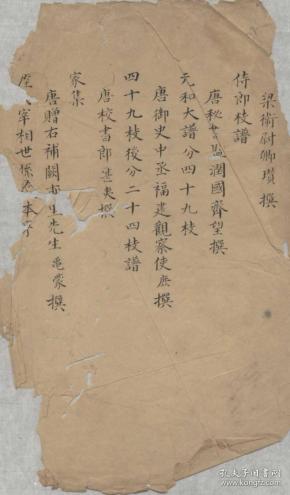 梁衛尉卿瓚撰
侍郎枝譜
唐秘書監潤國齊望撰
元和大譜分四十九枝
唐御史中丞福建觀察使庶撰
四十九枝後分二十四枝譜
唐校書郎湛夷撰
家集
唐贈右補闕甫里先生龜蒙撰
宰相世系
孔夫子旧书网
www.kongfz.com